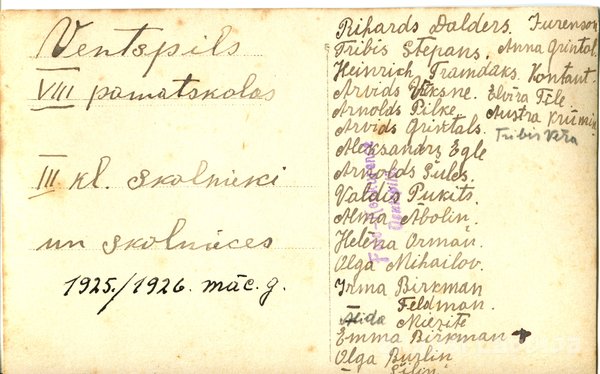 Ventspils
VIII pamatskolas
III kl. skolnieki
un skolnieces
1925./1926. māc. g.
Rihards Dalders. Jurenson
Tribis Stepans. Anna Grintal.
Heinrich Tramdaks. Kontaut
Arvids Vīksne. Elvīra File.
Arnolds Pilke. Austra Krūmin
Arvids Grintals. Tribis Vera
Aleksandrs Egle
Arnolds Šulcs.
Valdis Pukits.
Alma Āboliņ.
Helēna Ormaņ.
Olga Mihailov.
Irma Birkman
Feldman.
Alida Mierite
Emma Birkman +
Olga Burlin